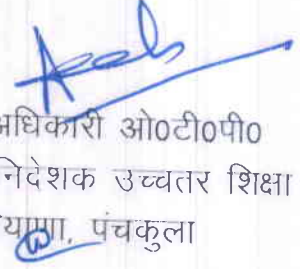 अधिकारी ओ0टी0पी0
निदेशक उच्चतर शिक्षा
पंचकुला